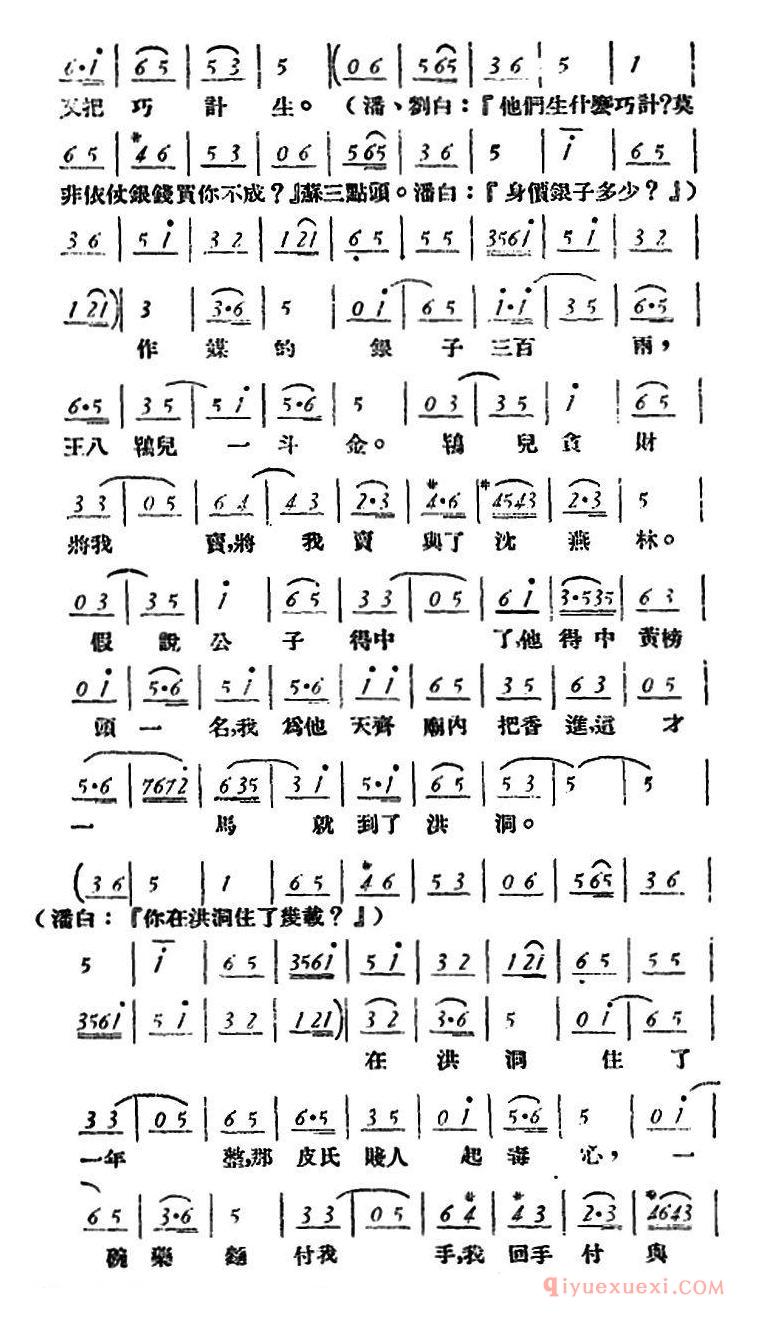 6·i | 65 | 53 | 5 | (06 | 565 | 36 | 5 | 1 |
又把 巧 計 生。（潘、劉白：『他們生什麼巧計？莫
65 | #46 | 53 | 06 | 565 | 36 | 5 | i | 65 |
非依仗銀錢買你不成？』蘇三點頭。潘白：『身價銀子多少？』）
36 | 5i | 32 | 121 | 65 | 55 | 3561 | 5i | 32 |
121) | 3 | 3·6 | 5 | 0i | 65 | i·i | 35 | 6·5 |
作 媒 的 銀 子 三百 兩，
6·5 | 35 | 5i | 5·6 | 5 | 03 | 35 | i | 65 |
王八 鴇兒 一 斗 金。 鴇 兒 貪 財
33 | 05 | 64 | 43 | 2·3 | #4·6 | #4543 | 2·3 | 5 |
將我 賣，將 我 賣 與了 沈 燕 林。
03 | 35 | i | 65 | 33 | 05 | 6i | 3·535 | 63 |
假 說 公 子 得中 了，他 得 中 黃榜
0i | 5·6 | 5i | 5·6 | ii | 65 | 35 | 63 | 05 |
頭 一 名，我 爲他 天齊 廟內 把香 進，這 才
5·6 | 7672 | 635 | 3i | 5·i | 65 | 53 | 5 | 5 |
一 馬 就 到了 洪 洞。
(36 | 5 | 1 | 65 | #46 | 53 | 06 | 565 | 36 |
（潘白：『你在洪洞住了幾載？』）
5 | i | 65 | 3561 | 5i | 32 | 121 | 65 | 55 |
3561 | 5i | 32 | 121) | 32 | 3·6 | 5 | 0i | 65 |
在 洪 洞 住 了
33 | 05 | 65 | 6·5 | 35 | 0i | 5·6 | 5 | 0i |
一年 整，那 皮氏 賤人 起 毒 心， 一
65 | 3·6 | 5 | 33 | 05 | 64 | #43 | 2·3 | #4643 |
碗 藥 麵 付我 手，我 回手 付 與
qiyuexuexi.COM